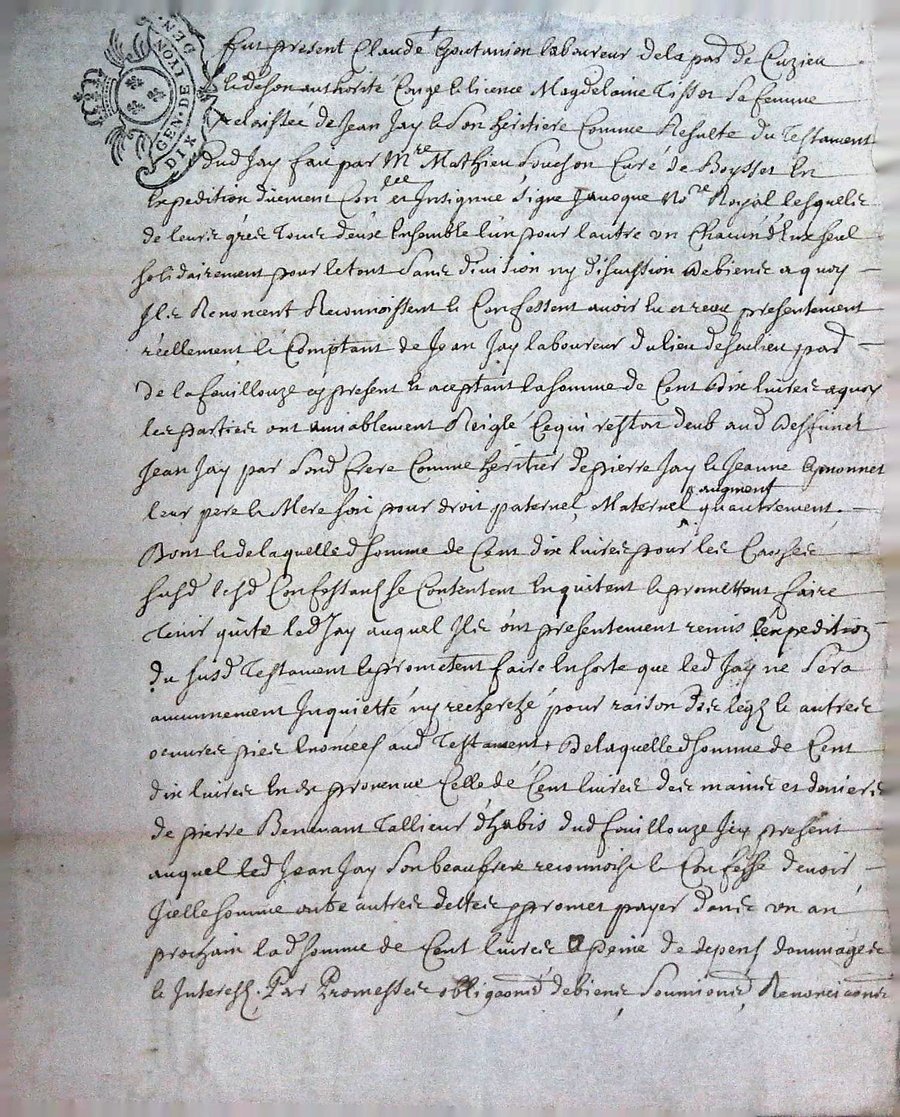 GEN DE LYON
DIX DEN
Fut present Claude laboureur de la par de Cuzieu
& de son authorité Conge & licence Magdelaine Tissot sa femme
relaissée de Jean Jay & son heritiere Comme Resulte du Testament
dud Jay fait par Mre Mathieu Souchon Curé de Boysset En
Expedition duement Conlee et Insignue signe Janoque Nore Royal lesquelz
de leurs grés tous deux Ensemble l'un pour l'autre un Chacun d'Eux seul
solidairement pour le tout sans division ny discussion de biens a quoy
Ils Renoncent Reconnoissent & Confessent avoir Eu et receu presentement
réellement & Comptant de Jean Jay laboureur du lieu de par
De la fouillouze cy present & aceptant la somme de Cent dix livres a quoy
les parties ont amiablement Reiglé Ce qui restoit deub aud deffunct
Jean Jay par sond frere Comme heritier de pierre Jay & Jeanne
leur pere & Mere soit pour droit paternel, Maternel augment qu autrement.
Dont & de laquelle d somme de Cent dix livres pour les Causes
susd lesd Confessantz se Contentent En quitent & promettent faire
tenir quite led Jay auquel Ils ont presentement remis l'expedition
du susd Testament & prometent faire En sorte que led Jay ne sera
aucunnement Inquietté ny recherché pour raison des légz & autres
oeuvres pies Enoncees aud Testament, De laquelle d somme de Cent
dix livres En provenue Celle de Cent livres des mains et deniers
de pierre Benevant Tallieur d'habis dud fouillouze Icy present
auquel led Jean Jay son beaufrere reconnoist & Confesse devoir
Icelle somme outre autres debtes & promet payer dans un an
prochain lad somme de Cent livres a peine de depens dommages
& Interestz. Par Promesses obligaons de biens Soumions Renonciaons